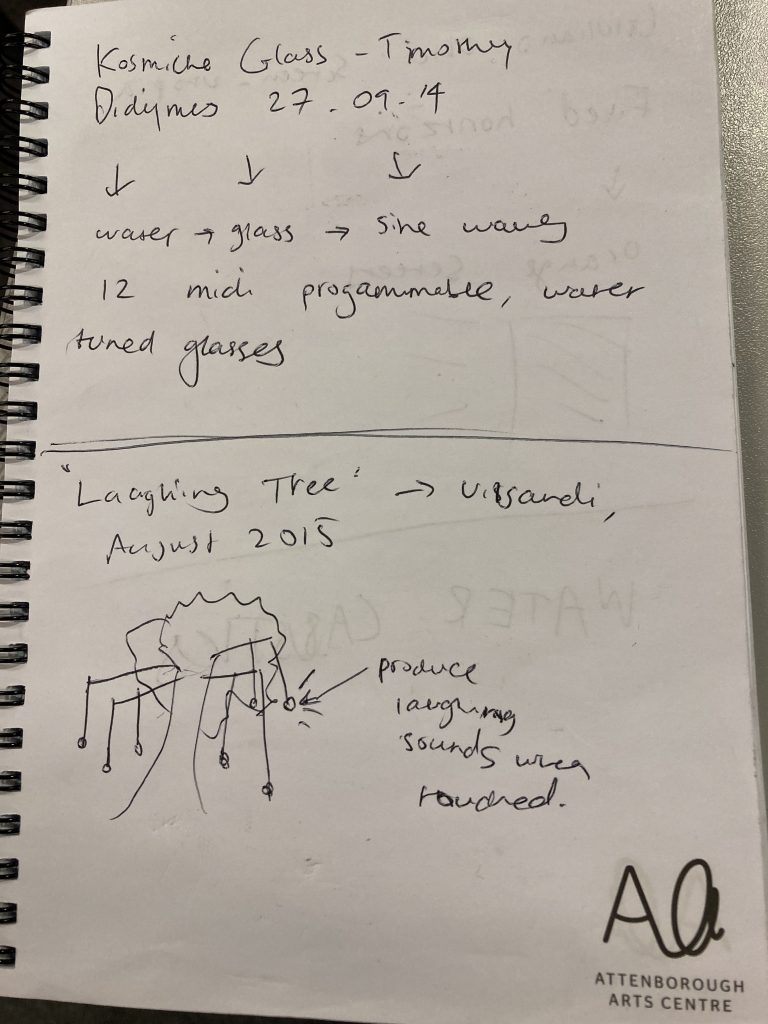 Kosmiche Glass - Timothy
Didymus 27.09.'14
↓ ↓ ↓
water → glass → sine waves
12 midi progammable, water
tuned glasses
"Laughing Tree" →
August 2015
produce
laughing
sounds when
touched.
Aa
ATTENBOROUGH
ARTS CENTRE